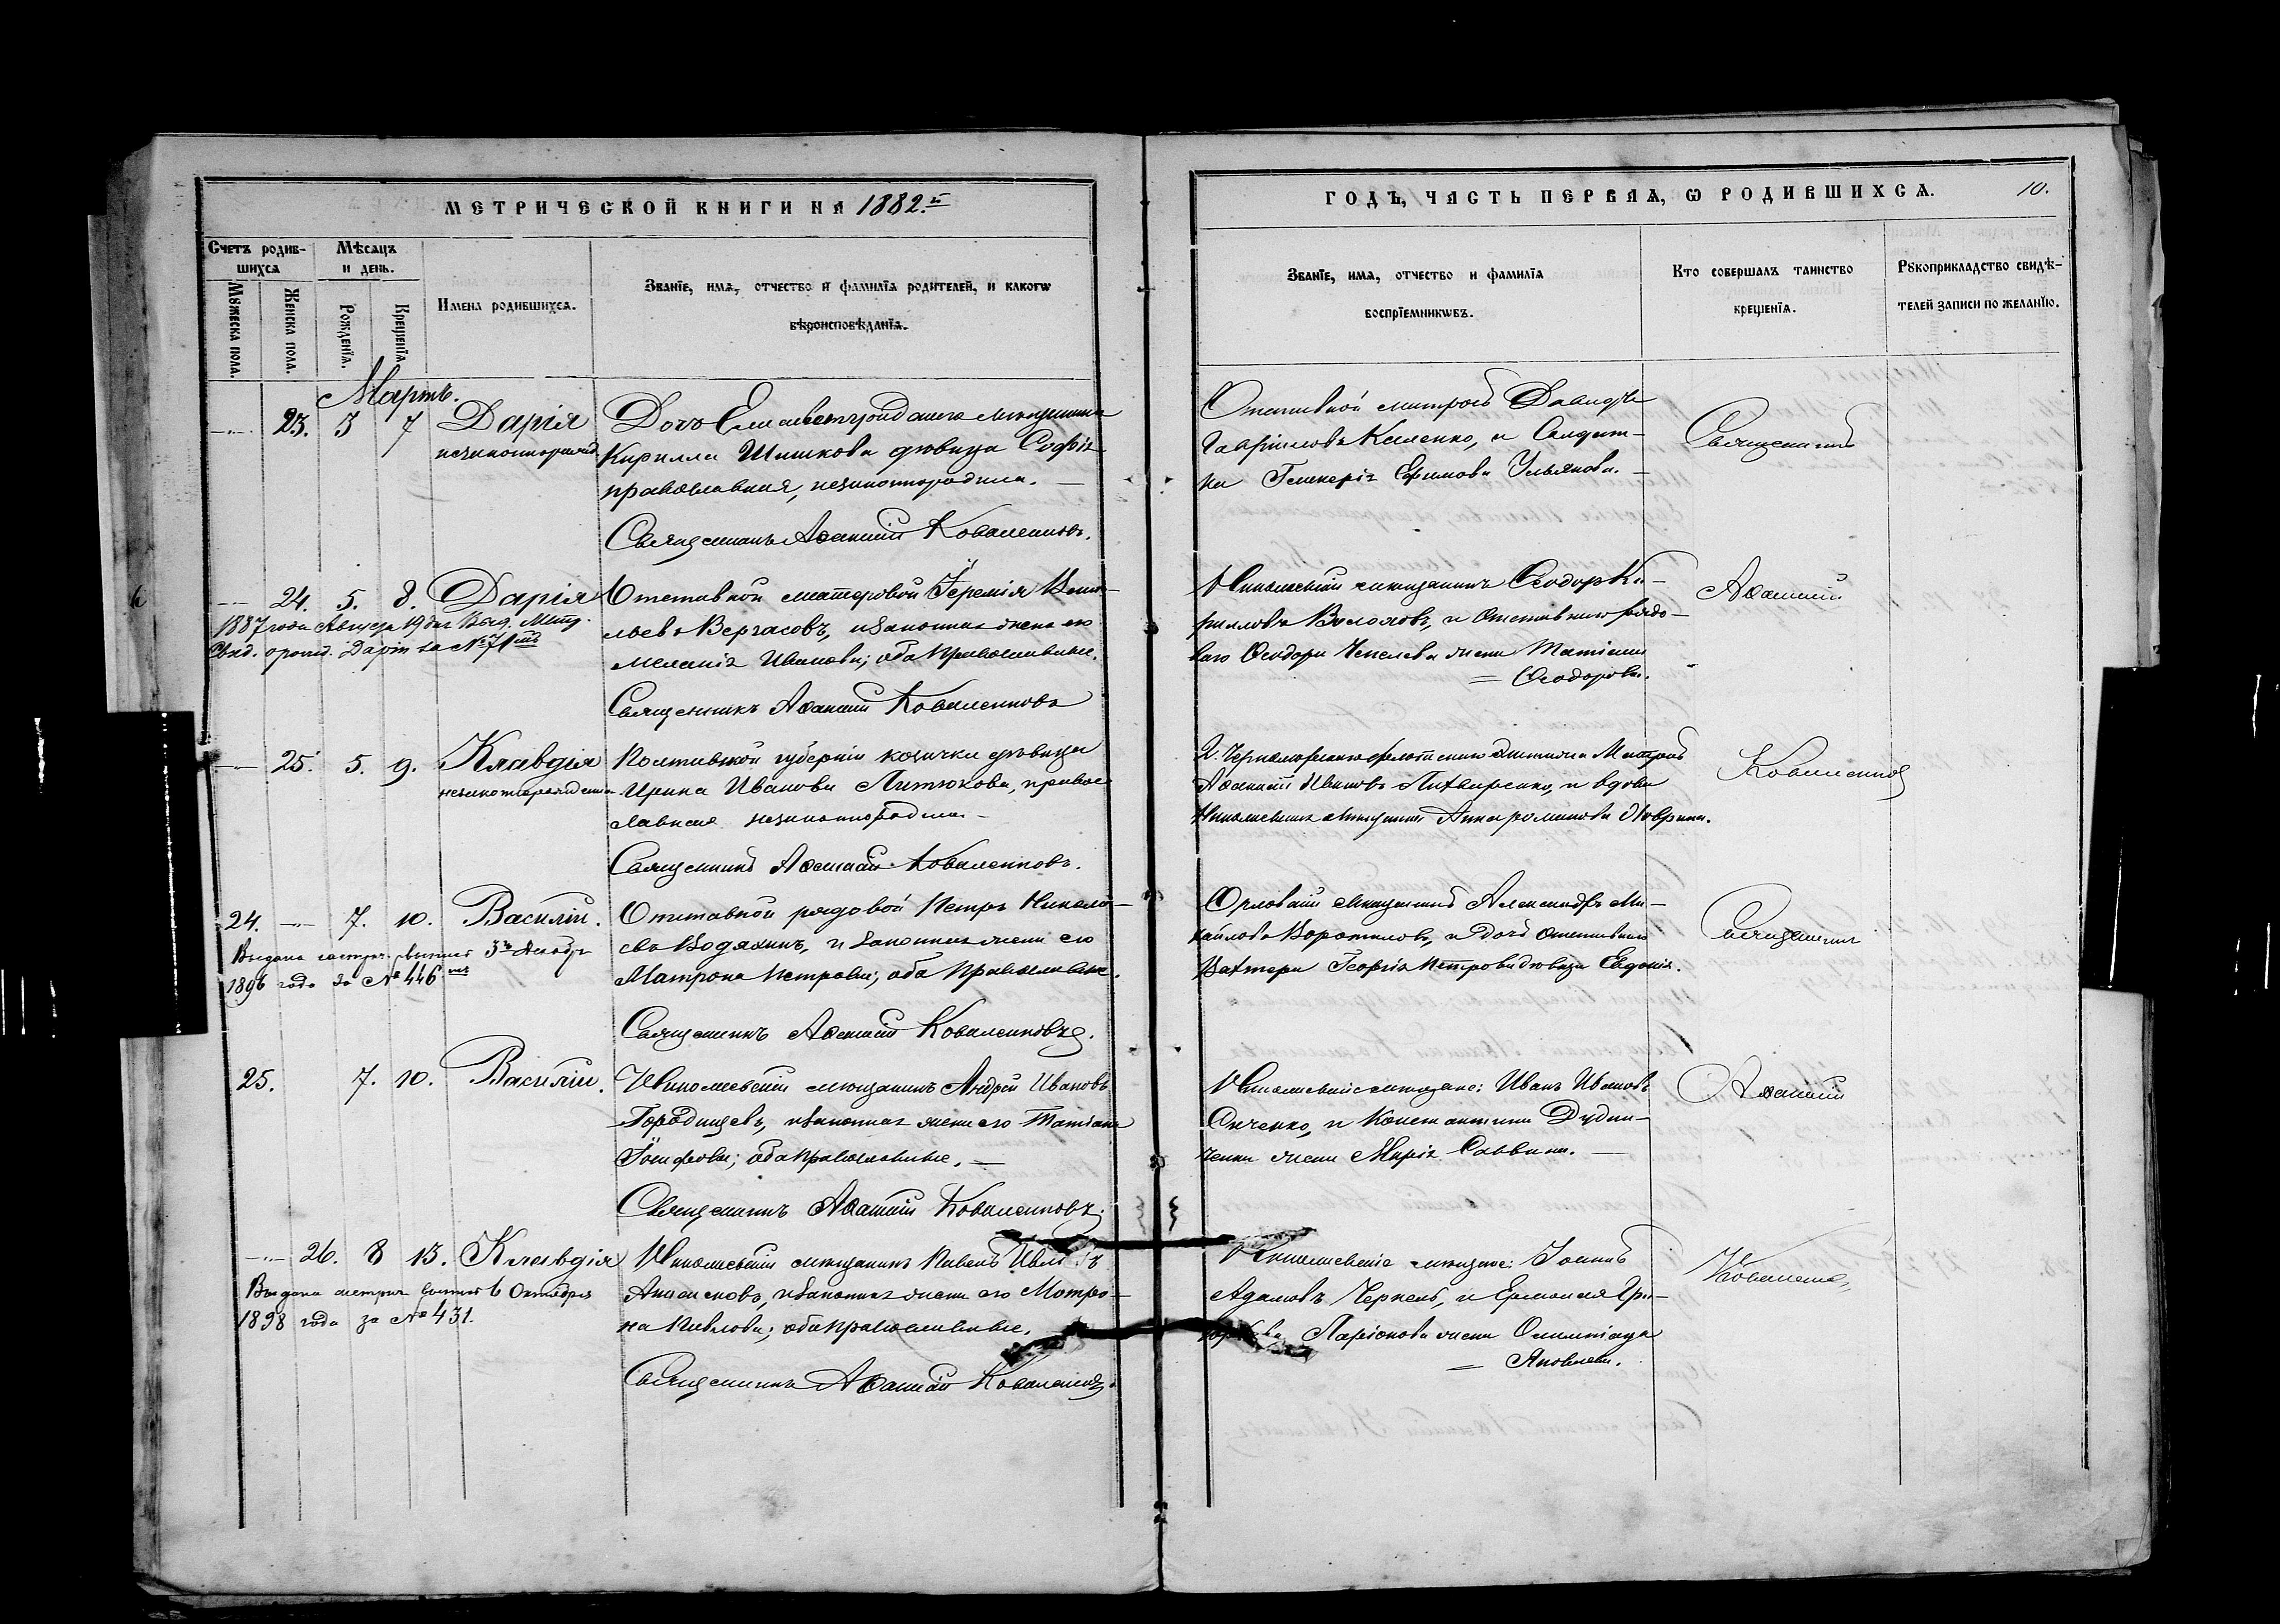 МЕТРИЧЕСКОЙ КНИГИ НА 1882.й
ГОДЪ, ЧАСТЬ ПЕРВАЯ, Ѡ РОДИВШИХСЯ.
10.
Счетъ родив-
шихся
Мꙋжеска пола.
Женска пола.
Мѣсяцъ
и день.
Рожденїя.
Крещенїя.
Имена родившихся.
Званїе, имя, отчество и фамилїя родителей, и какогѡ
вѣроисповѣданїя.
Званїе, имя, отчество и фамилїя
воспрїемникѡвъ.
Кто совершалъ таинство
крещенїя.
Рꙋкоприкладство свидѣ-
телей записи по желанїю.
Мартъ.
23. 3 7 Дарія
незаконнорожд.
Дочь Елисаветградскаго мѣщанина
Кирилла Шишкова дѣвица Софія
православная, незаконнородила.
Священникъ Аѳанасій Коваленковъ.
Отставной матросъ Давидъ
Гавріиловъ Каленко, и Солдат-
ка Гликерія Ефимова Ульянова.
Священникъ
24. 5. 8. Дарія
1887 года Августа 19 дня Выд. Метр.
Свид. о рожд. Даріи за № 71
Отставной мастеровой Іеремія Васи-
льевъ Вергасовъ, и законная жена его
Меланія Иванова; оба православные.
Священникъ Аѳанасій Коваленковъ
Николаевскій мѣщанинъ Ѳеодоръ Ки-
рилловъ Волоховъ, и Отставнаго рядо-
ваго Ѳеодора Чепелева жена Татіана
Ѳеодорова.
Аѳанасій
25. 5. 9. Клавдія
незаконнорожденная
Полтавской губерніи козачка дѣвица
Ирина Иванова Литюкова, правос-
лавная незаконнородила
Священникъ Аѳанасій Коваленковъ.
2. Черноморскаго флотскаго экипажа Матросъ
Аѳанасій Ивановъ Литваренко, и вдова
Николаевская мѣщанка Анна романова
Коваленковъ
24. 7. 10. Василій.
Выдана метрич. выпись 3го Декабр
1896 года за № 446
Отставной рядовой Петръ Николае-
въ Водяхинъ, и законная жена его
Матрона Петрова; оба православные.
Священникъ Аѳанасій Коваленковъ.
Орловскій мѣщанинъ Александръ Ми-
хайловъ Воротиловъ, и Дочь отставнаго
Вахтера Георгія Петрова дѣвица Евдокія.
Священникъ
25. 7. 10. Василій.
Николаевскій мѣщанинъ Андрей Ивановъ
Городищевъ, и законная жена его Татіана
Іосифова; оба православные.
Священникъ Аѳанасій Коваленковъ.
Николаевскіе мѣщане: Иванъ Ивановъ
Онченко, и Константина Дудни-
ченки жена Марія Саввина.
Аѳанасій
26. 8 13. Клавдія
Выдана метрич выпись 6 Октября
1898 года за № 431.
Николаевскій мѣщанинъ Павелъ
Анисимовъ, и законная жена его Матро-
на Павлова; оба православные.
Священникъ Аѳанасій Коваленковъ.
Николаевскіе мѣщане: Іоаннъ
Адамовъ Черкесъ, и Ермолая Гри-
Ларіонова жена Олимпіада
Яковлева.
Коваленко